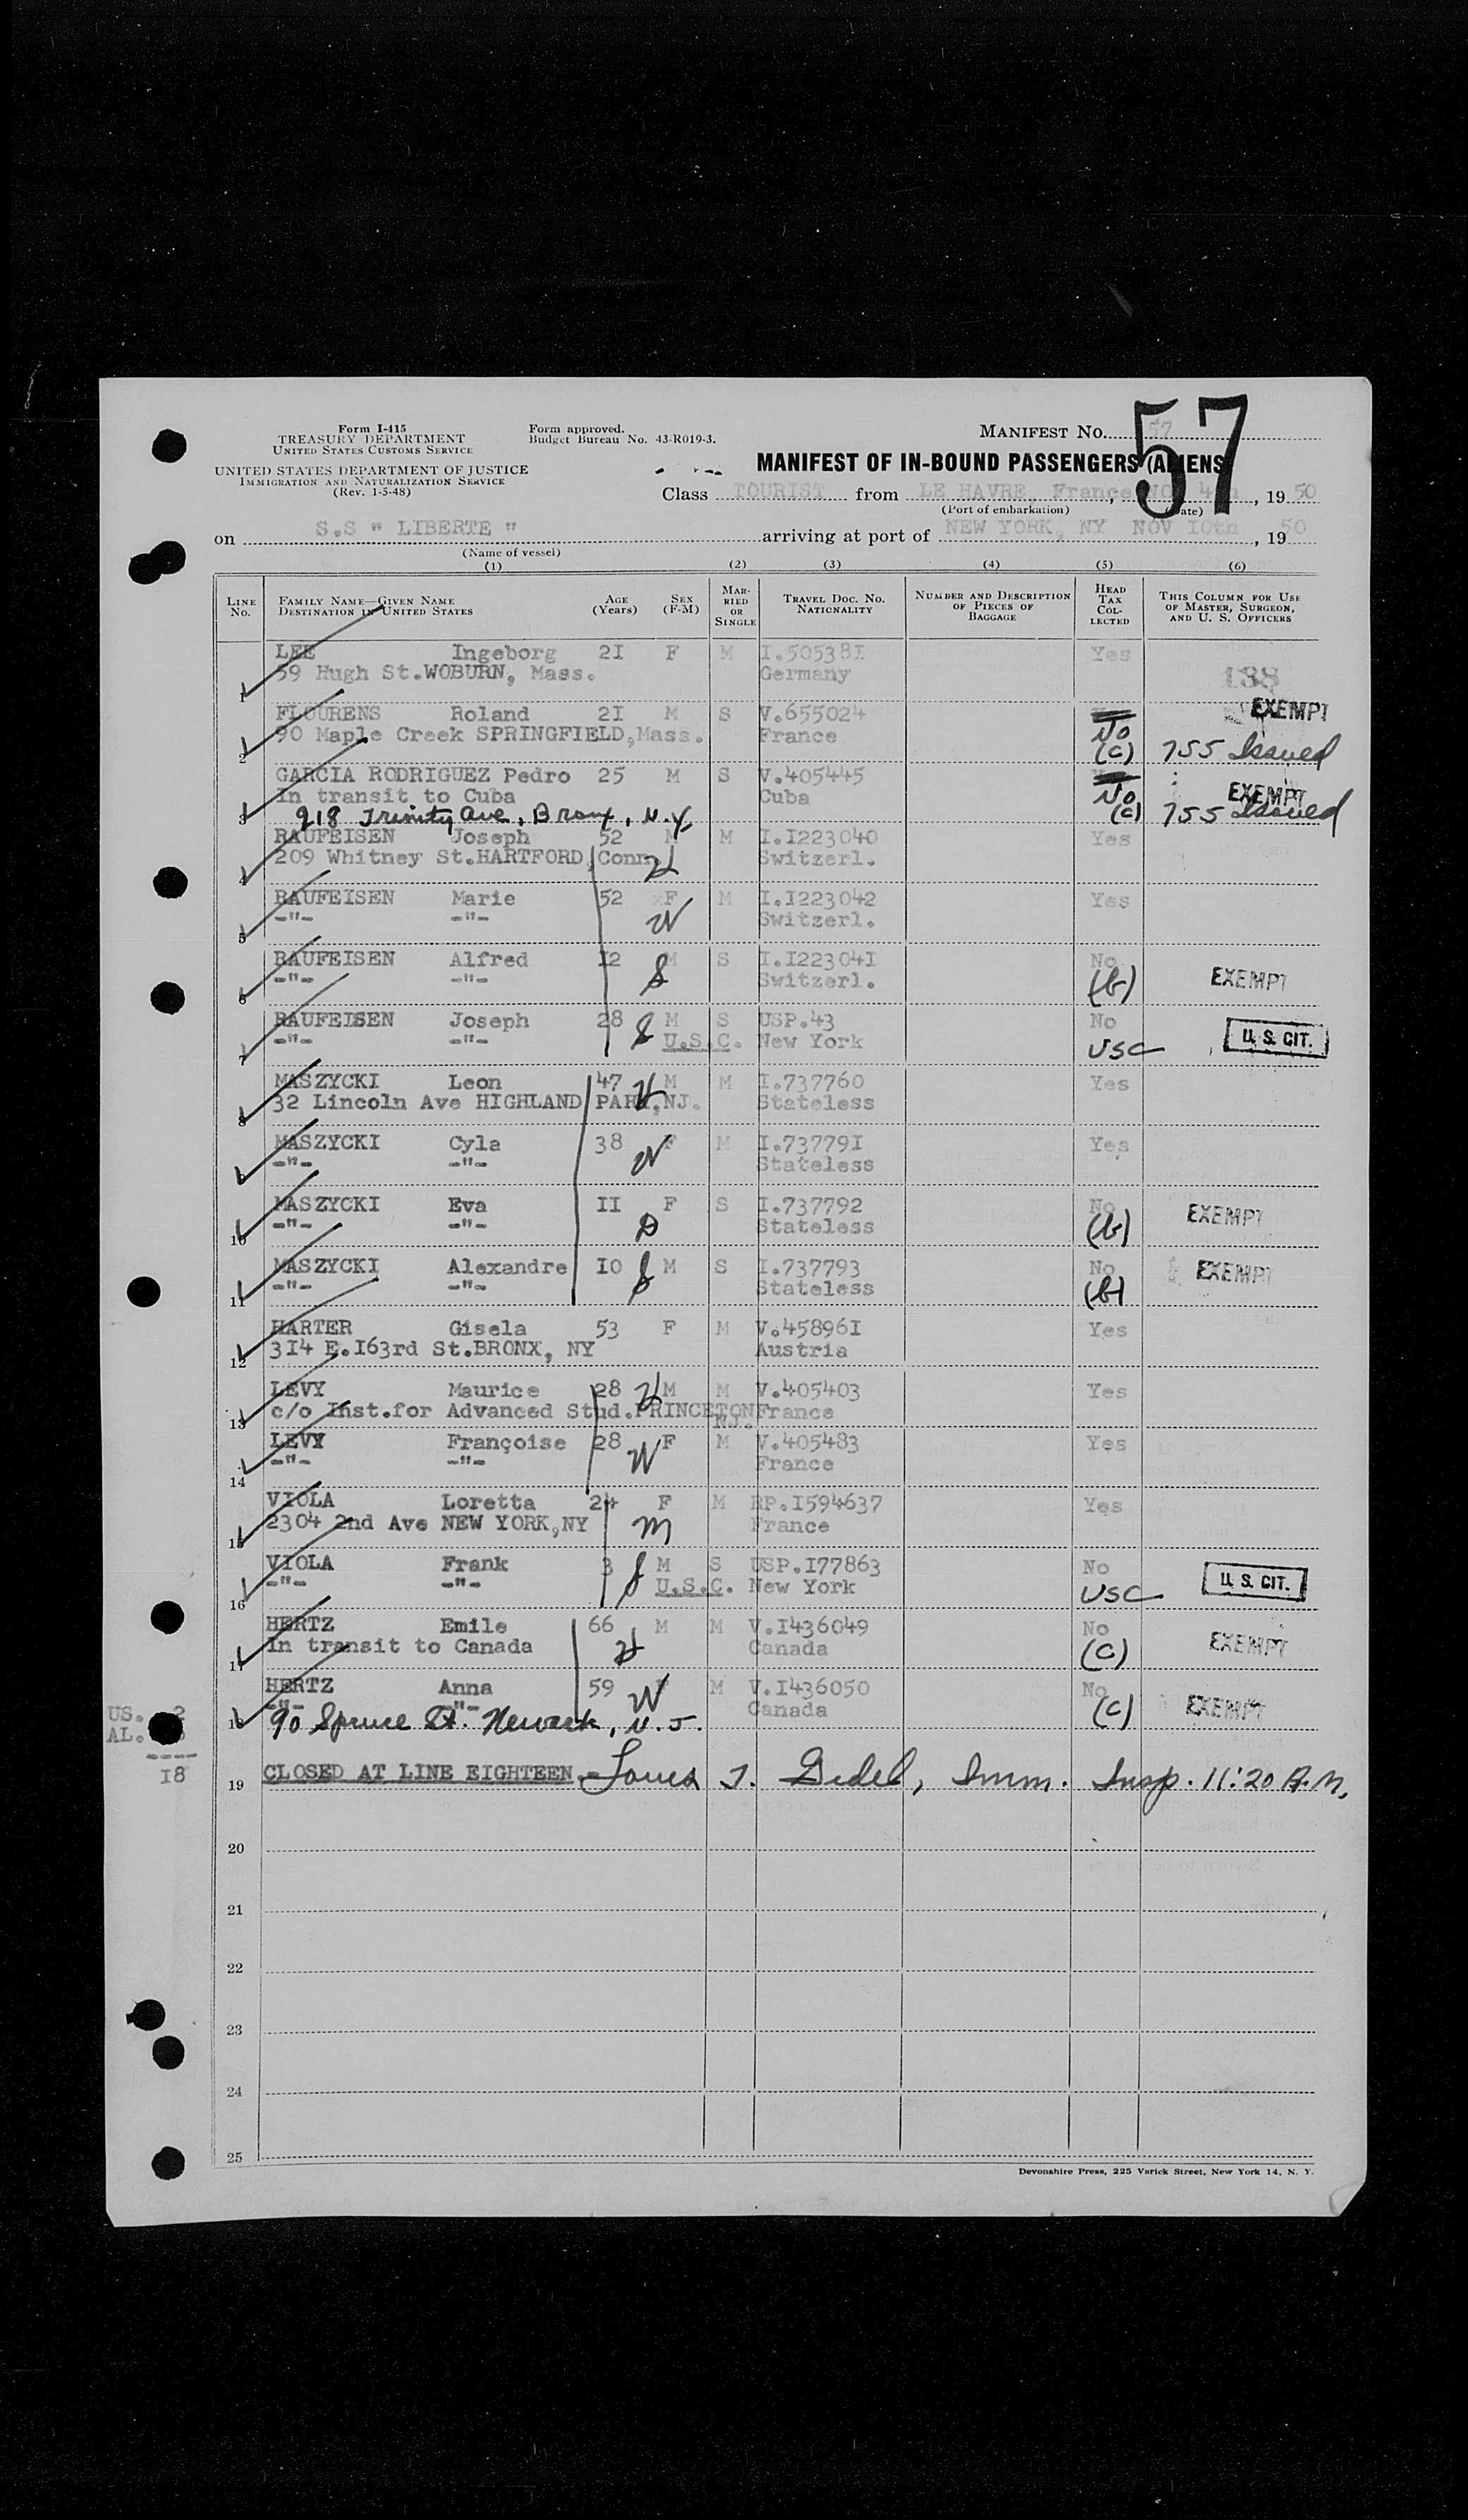 Form I-415
TREASURY DEPARTMENT
UNITED STATES CUSTOMS SERVICE
UNITED STATES DEPARTMENT OF JUSTICE
IMMIGRATION AND NATURALIZATION SERVICE
(Rev. 1-5-48)
Form approved.
Budget Bureau No. 43-R019-3.
MANIFEST No. 57
57
MANIFEST OF IN-BOUND PASSENGERS (ALIENS
Class TOURIST from LE HAVRE, France, 4th, 1950
(Port of embarkation) (Date)
on S.S " LIBERTE " arriving at port of NEW YORK, NY NOV I0th, 1950
(Name of vessel)
(1) (2) (3) (4) (5) (6)
LINE No. FAMILY NAME—GIVEN NAME DESTINATION IN UNITED STATES AGE (Years) SEX (F-M) MARRIED OR SINGLE TRAVEL DOC. NO. NATIONALITY NUMBER AND DESCRIPTION OF PIECES OF BAGGAGE HEAD TAX COLLECTED THIS COLUMN FOR USE OF MASTER, SURGEON, AND U. S. OFFICERS
LEE Ingeborg 2I F M I.50538I Yes
1 59 Hugh St.WOBURN, Mass. Germany 138
FLOURENS Roland 2I M S V.655024 No EXEMPT
2 90 Maple Creek SPRINGFIELD,Mass. France (c) 755 Issued
GARCIA RODRIGUEZ Pedro 25 M S V.405445 No EXEMPT
In transit to Cuba Cuba (c) 755 Issued
3 918 Trinity Ave, Bronx, N.Y.
RAUFEISEN Joseph 52 M M I.I223040 Yes
4 209 Whitney St.HARTFORD,Conn. H Switzerl.
RAUFEISEN Marie 52 F M I.I223042 Yes
5 -"- -"- W Switzerl.
RAUFEISEN Alfred I2 M S I.I22304I No
6 -"- -"- S Switzerl. (b) EXEMPT
RAUFEISEN Joseph 28 S M S USP.43 No
7 -"- -"- U.S.C. New York USC U. S. CIT.
MASZYCKI Leon 47 H M M I.737760 Yes
8 32 Lincoln Ave HIGHLAND PARK,NJ. Stateless
MASZYCKI Cyla 38 F M I.73779I Yes
9 -"- -"- W Stateless
MASZYCKI Eva II F S I.737792 No
10 -"- -"- D Stateless (b) EXEMPT
MASZYCKI Alexandre IO S M S I.737793 No
11 -"- -"- Stateless (b) EXEMPT
HARTER Gisela 53 F M V.45896I Yes
12 3I4 E.I63rd St.BRONX, NY Austria
LEVY Maurice 28 H M M V.405403 Yes
13 c/o Inst.for Advanced Stud.PRINCETON NJ. France
LEVY Françoise 28 W F M V.405483 Yes
14 -"- -"- France
VIOLA Loretta 24 F M RP.I594637 Yes
15 2304 2nd Ave NEW YORK,NY M France
VIOLA Frank 3 S M S USP.I77863 No
16 -"- -"- U.S.C. New York USC U. S. CIT.
HERTZ Emile 66 M M V.I436049 No
17 In transit to Canada H Canada (c) EXEMPT
HERTZ Anna 59 W M V.I436050 No
-"- -"- Canada (c) EXEMPT
18 90 Spruce St. Newark, N.J.
US. 2
AL.
----
I8
19 CLOSED AT LINE EIGHTEEN - Louis J. Gidel, Imm. Insp. 11:20 A.M.
20
21
22
23
24
25
Devonshire Press, 225 Varick Street, New York 14, N. Y.